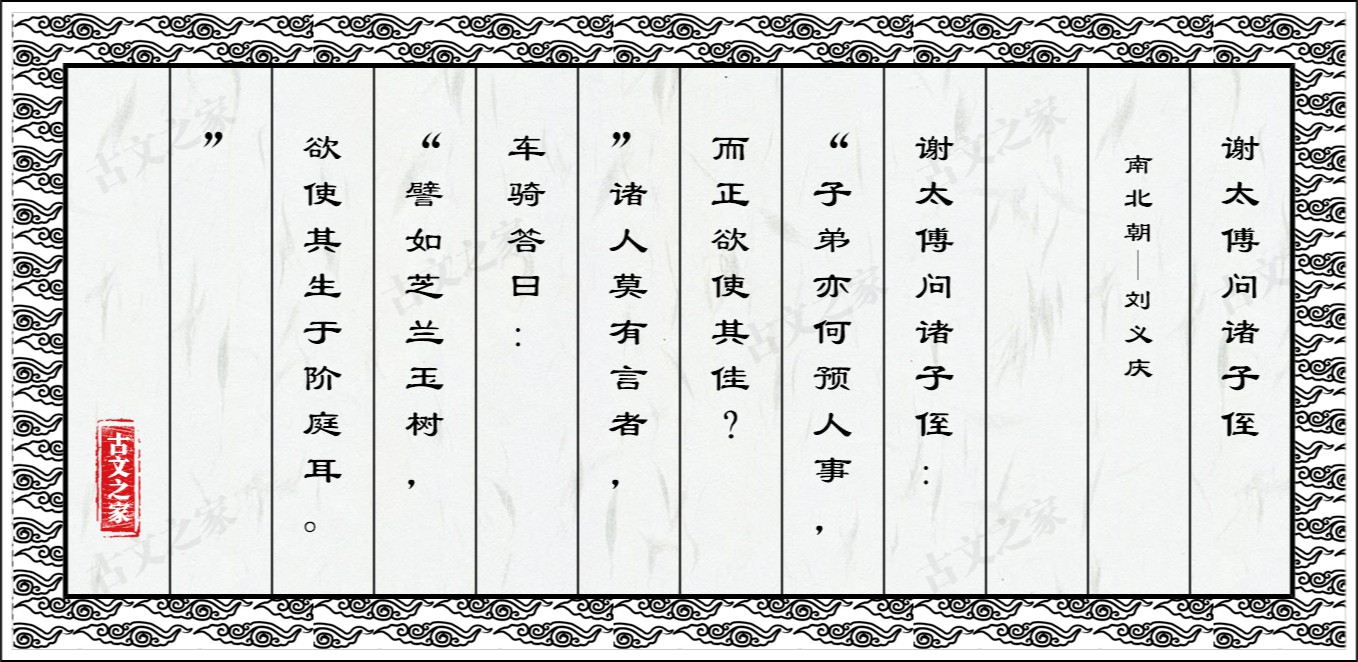 谢太傅问诸子侄
南北朝—刘义庆
谢太傅问诸子侄：
“子弟亦何预人事，
而正欲使其佳？
”诸人莫有言者，
车骑答曰：
“譬如芝兰玉树，
欲使其生于阶庭耳。
”
古文之家